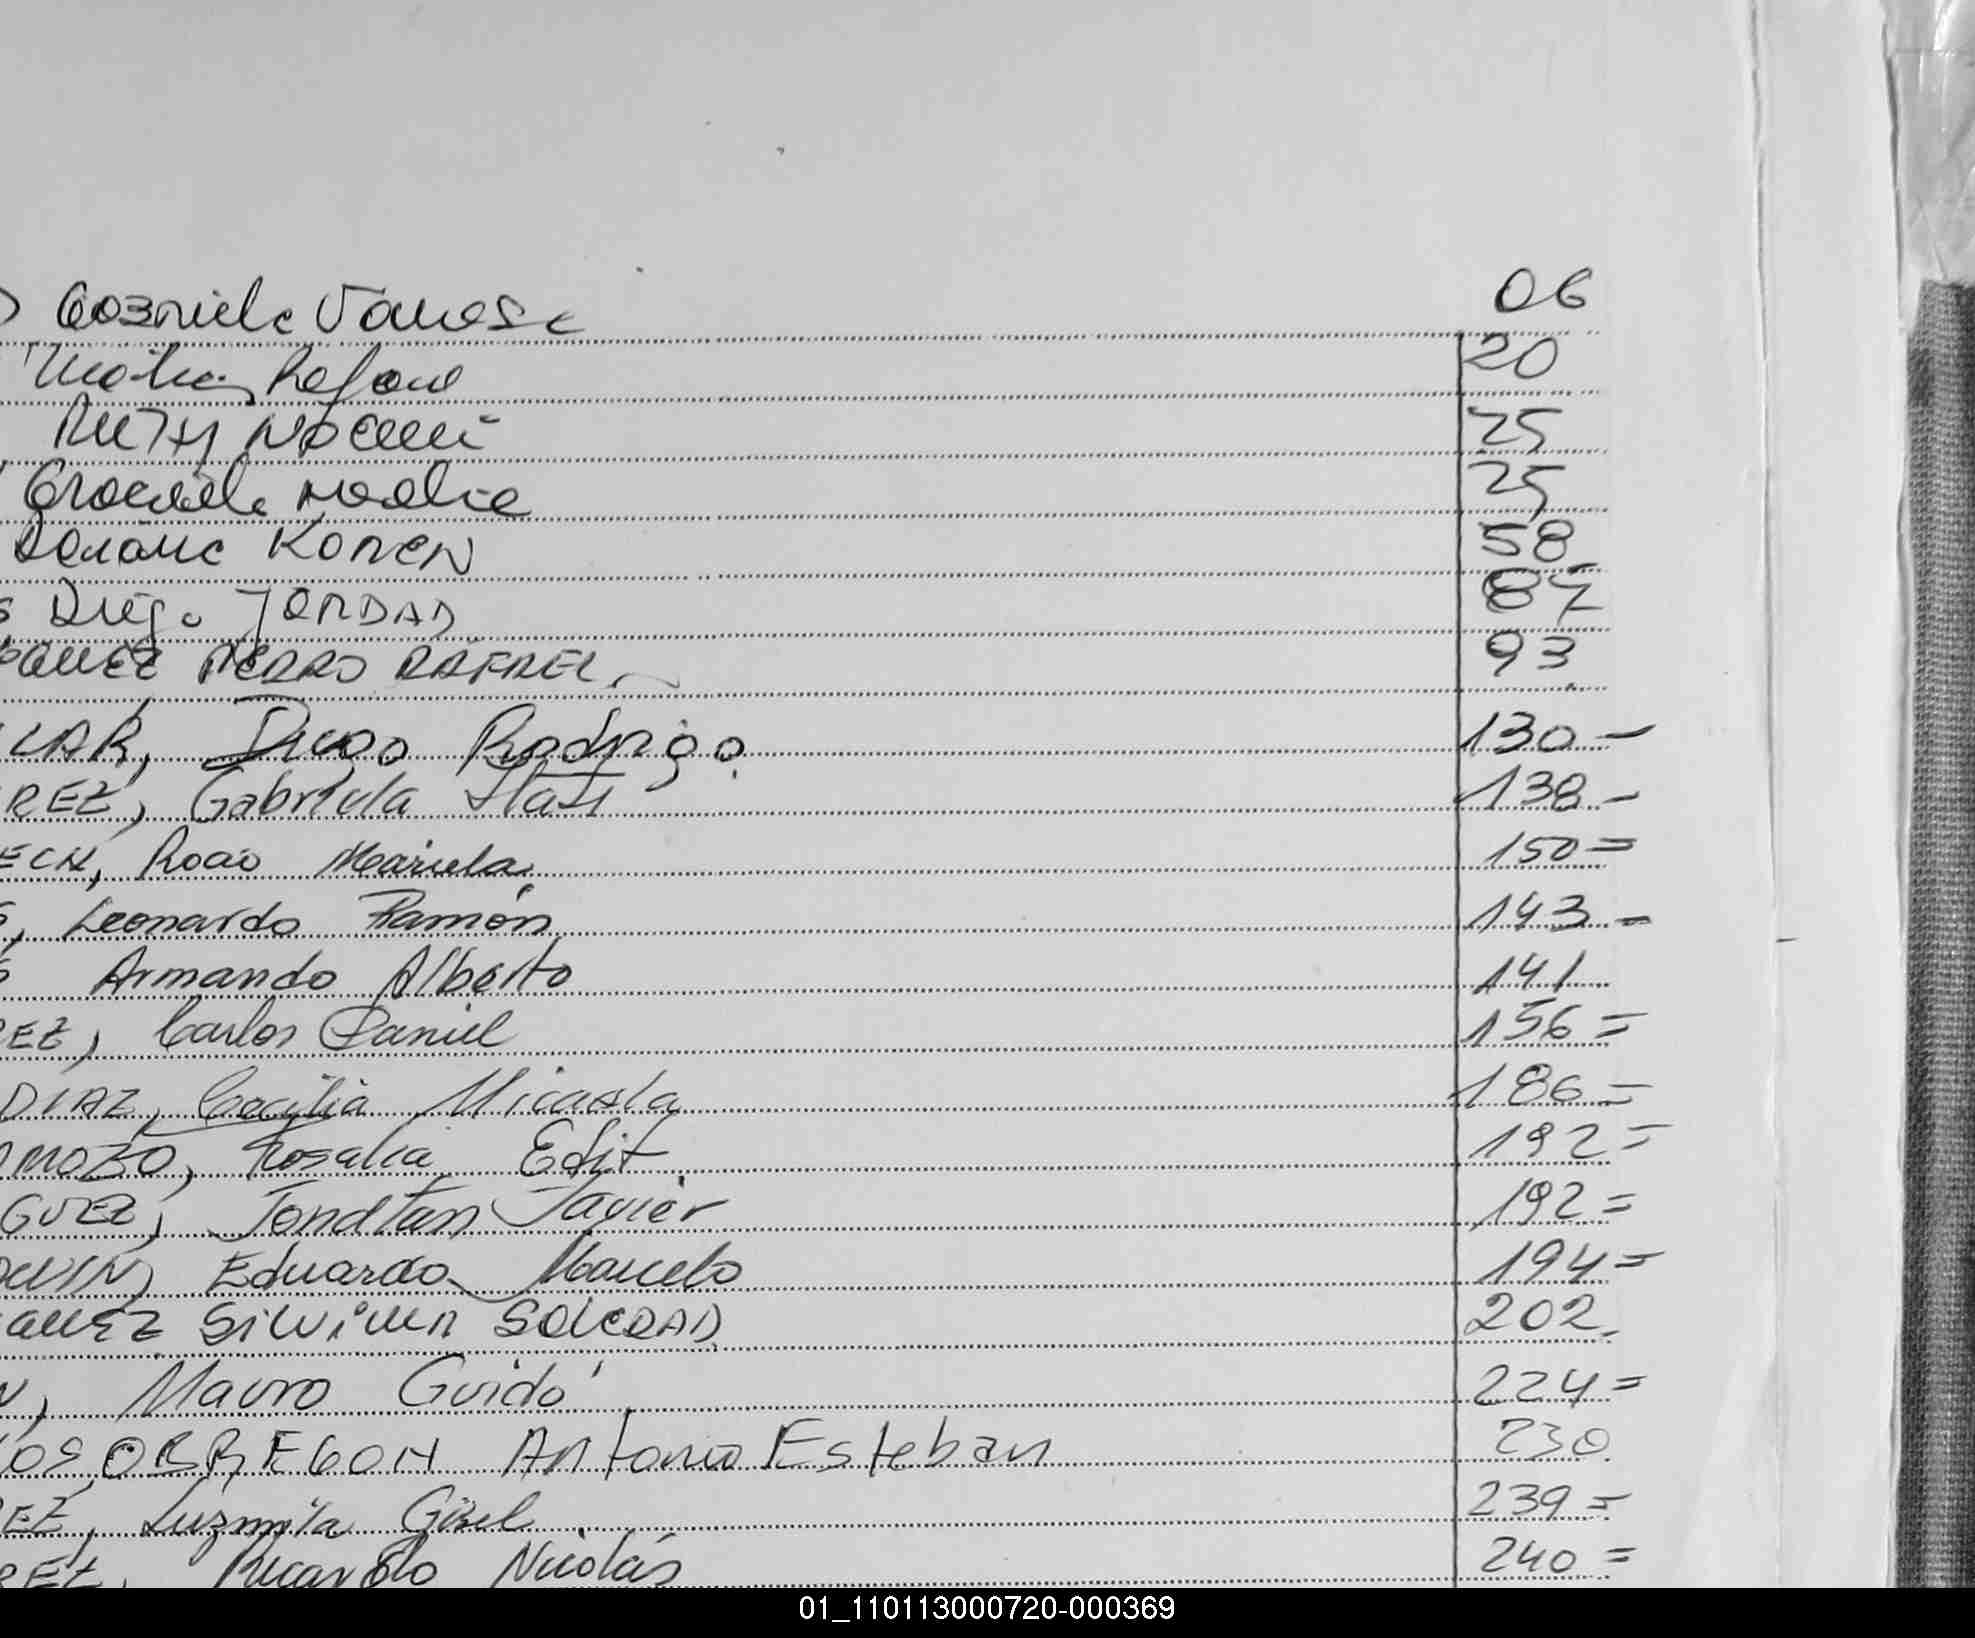 Gabriela Vanesa 06
Matias Rafael 20
RUTH NOEMÍ 25
Graciela Noelia 25
Daiana KAREN 58
Diego JORDAD 87
PEDRO RAFAEL 93
LAR, Diego Rodrigo 130-
REZ, Gabriela Itatí 138-
ECH, Rocío Mariela 150=
S, Leonardo Ramón 143-
S Armando Alberto 141
REZ, Carlos Daniel 156=
DIAZ, Cecilia Micaela 186=
AMOZO, Rosalia Edit 192=
GUEZ, Jonatan Javier 192=
Eduardo Marcelo 194=
SILVINA SOLEDAD 202
N, Mauro Guido 224=
OS OBREGON Antonio Esteban 230
REZ, Luzmila Gisel 239=
REZ, Ricardo Nicolás 240=
01_110113000720-000369